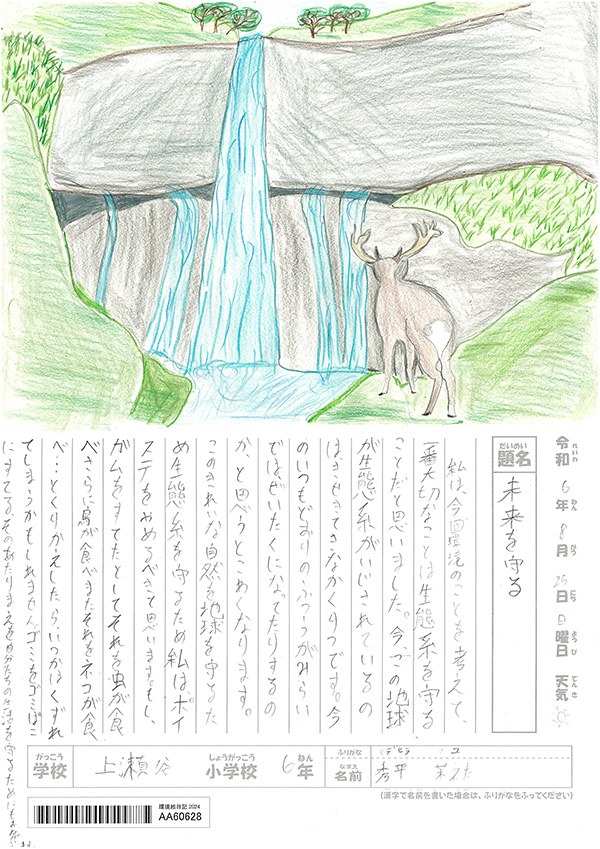 令和 6年 8月 25日 日曜日 天気
れいわ ねん がつ にち ようび てんき
だいめい
題名 未来を守る
私は、今回環境のことを考えて、
一番大切なことは生態系を守る
ことだと思いました。今、この地球
が生態系がいじされているの
はきせきてきなかくりつです。今
のいつもどおりのふつうがみらい
ではぜいたくになってたりするの
か、と思うとこわくなります。
このきれいな自然を地球を守るた
め生態系を守るため私は、ポイ
ステをやめるべきと思います。もし、
ガムをすてたとしてそれを虫が食
べさらに鳥が食べまたそれをネコが食
べ…とくりかえしたら、いつかはくずれ
てしまうかもしれません。ゴミをゴミばこ
にすてる。そのあたりまえを自分たちの生活を守るためにも
がっこう
学校 上瀬谷
しょうがっこう
小学校
ねん
6年
ふりがな
なまえ
名前
(漢字で名前を書いた場合は、ふりがなをふってください)
環境絵日記 2024
AA60628